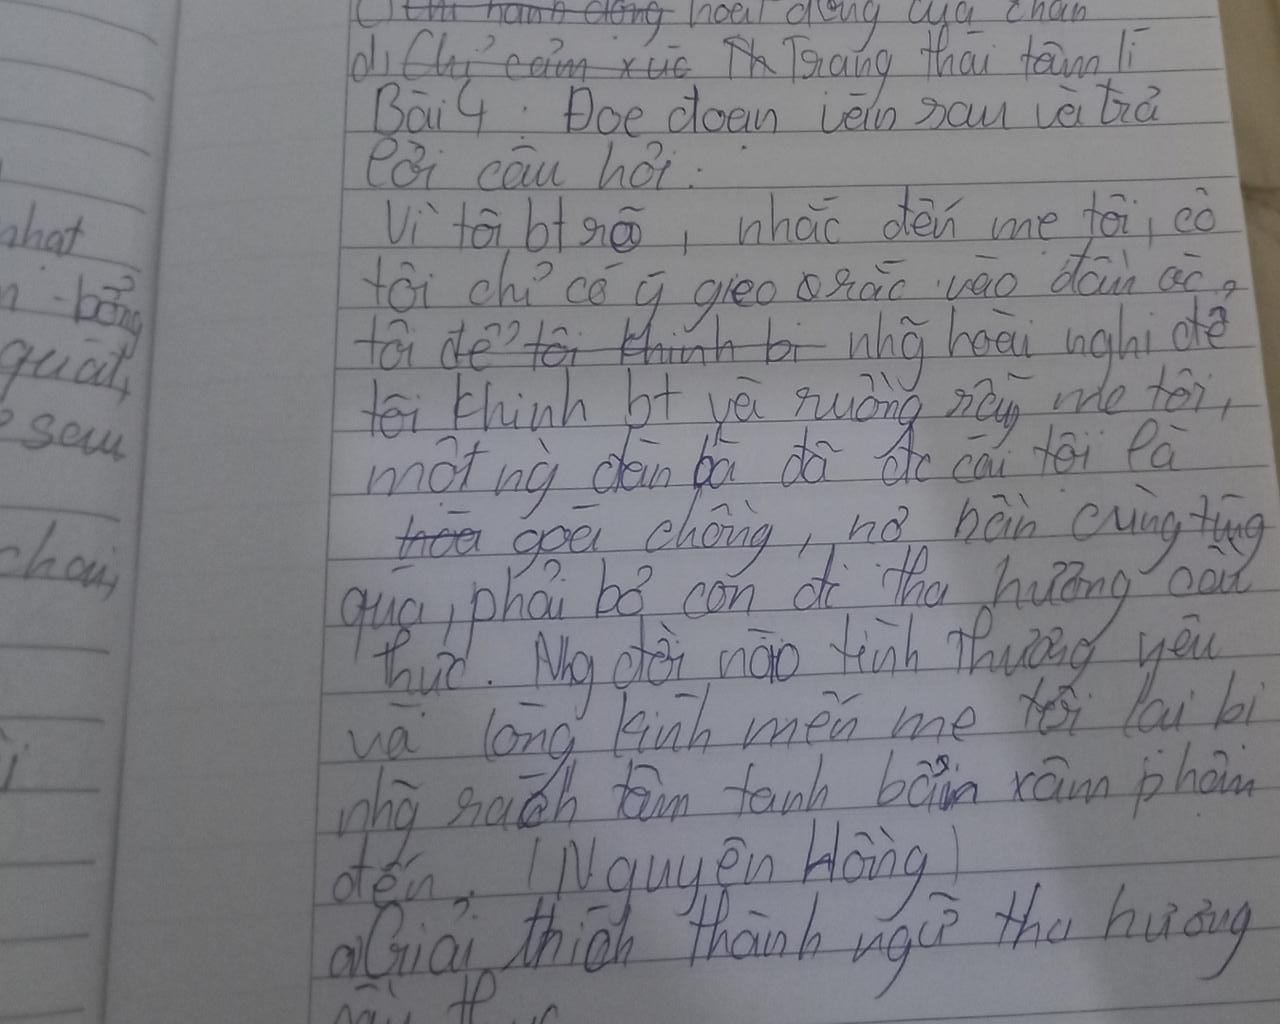 nhat
n bổng
quát,
sau
chai,
c) thi hành động hoạt động của chân
d, Chỉ cảm xúc Th Trạng thái tâm lí
Bài 4: Đọc đoạn văn sau và trả
lời câu hỏi:
Vì tôi bt rõ, nhắc đến mẹ tôi, cô
tôi chỉ có ý gieo rắc vào đầu óc
tôi để tôi khinh bỉ nhg hoài nghi để
tôi khinh bt và ruồng rẫy mẹ tôi,
một ng đàn bà đã đc cái tội là
hóa goá chồng, nợ nần cùng túng
quá, phải bỏ con đi tha hương cầu
thực. Nhg đời nào tình thương yêu
và lòng kính mến mẹ tôi lại bị
nhg rắch tâm tanh bẩn xâm phạm
đến. (Nguyên Hồng)
a, Giải thích thành ngữ tha hương
cầu thực